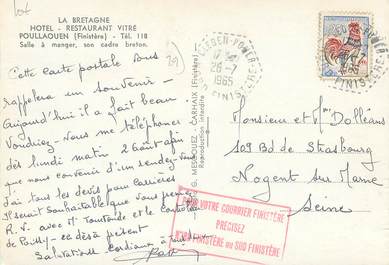 LA BRETAGNE
HOTEL - RESTAURANT VITRÉ
POULLAOUEN (Finistère) - Tél. 118
Salle à manger, son cadre breton.
29
Cette carte postale vous
rappelera un souvenir -
Aujourd'hui il a fait beau
Voudriez-vous me téléphoner
dès lundi matin 2 août afin
que nous convenir d'un rendez-vous
J'ai tous les devis pour carrières
Il serait souhaitable que vous preniez
R.V. avec Mr et le
de - ce dès à présent
Salutations cordiales à tous deux
G. MEVROUEZ - CARHAIX (Finistère)
Reproduction interdite
28-7
1965
FINISTERE
Monsieur et Mme Dolléans
109 Bd de Strasbourg
Nogent sur Marne
Seine
POUR VOTRE COURRIER FINISTÈRE
PRECISEZ
NORD FINISTÈRE ou SUD FINISTÈRE